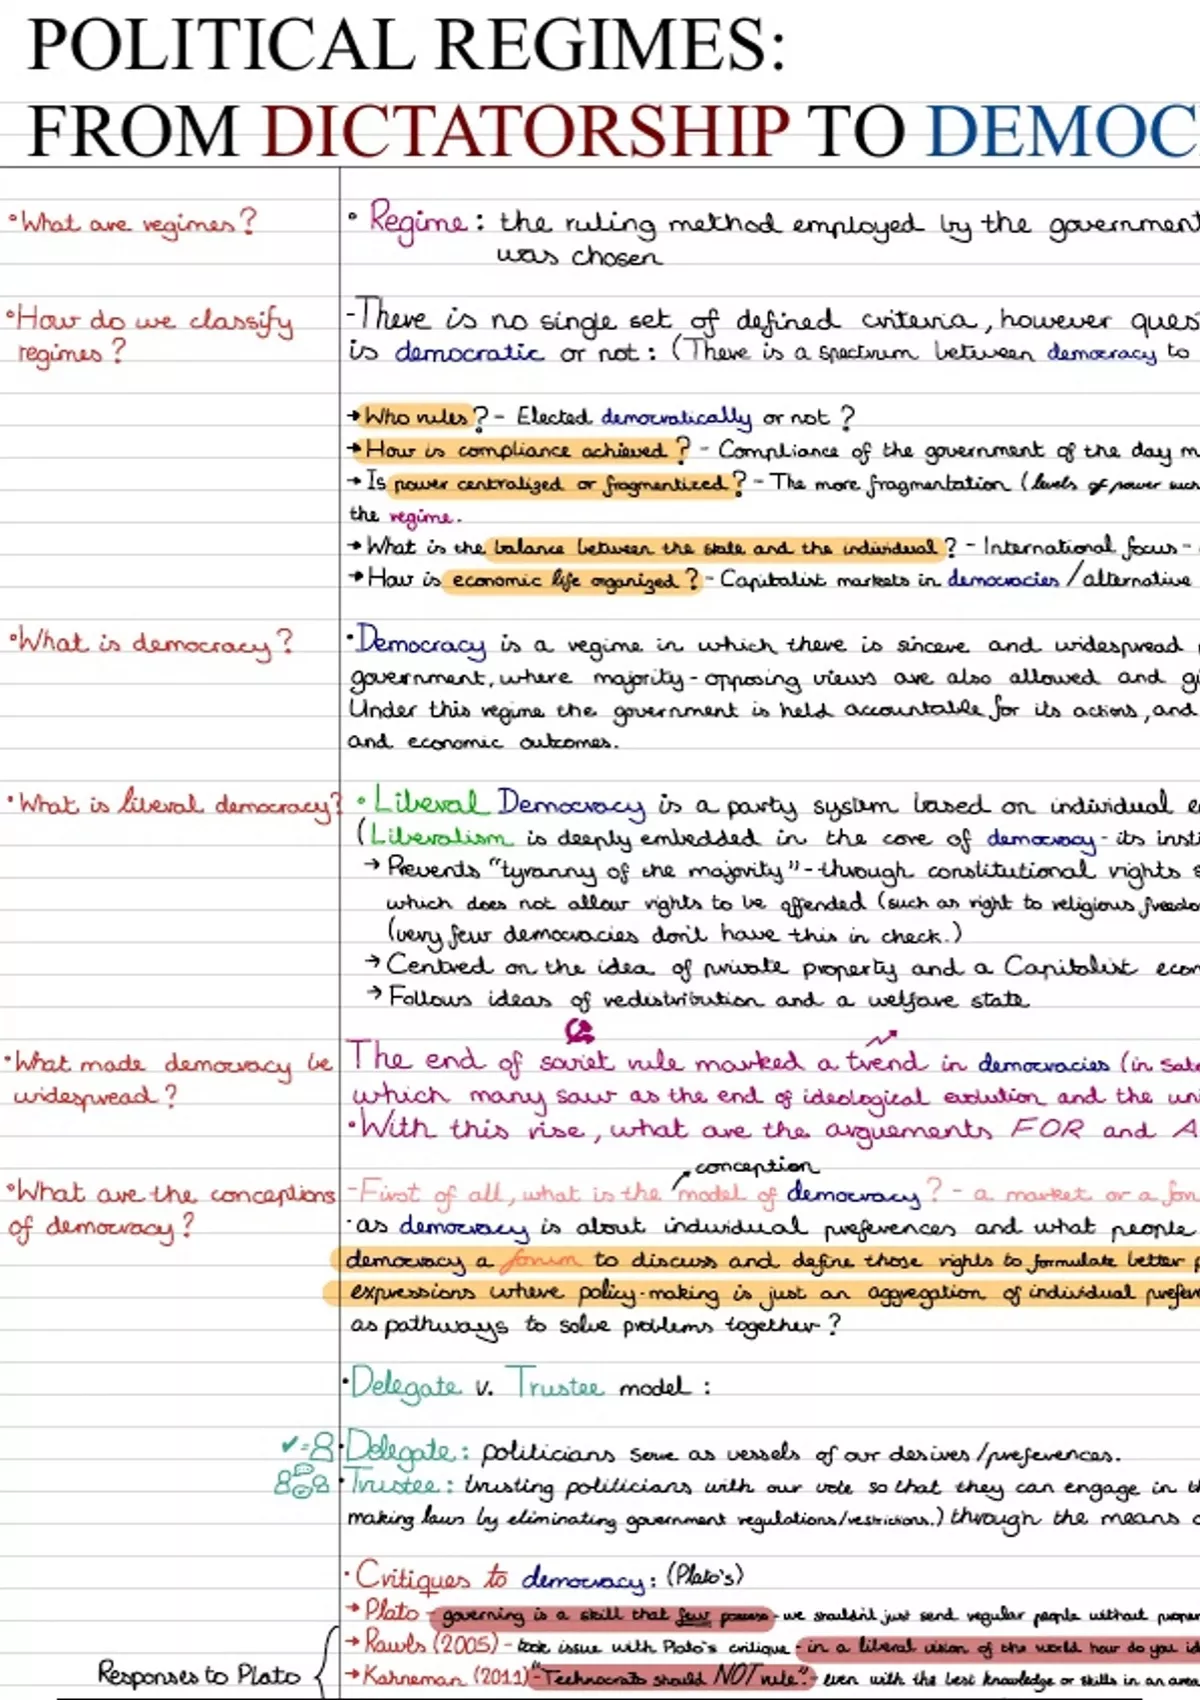 POLITICAL REGIMES:
FROM DICTATORSHIP TO DEMOC
°What are regimes?
° Regime: the ruling method employed by the government
was chosen
°How do we classify
regimes?
-There is no single set of defined criteria, however ques
is democratic or not: (There is a spectrum between democracy to
→Who rules? - Elected democratically or not?
→How is compliance achieved? - Compliance of the government of the day m
→Is power centralized or fragmentized? - The more fragmentation (levels of power suc
the regime.
→What is the balance between the state and the individual? - International focus -
→How is economic life organized? - Capitalist markets in democracies/alternative
°What is democracy?
·Democracy is a regime in which there is sincere and widespread
government, where majority-opposing views are also allowed and gi
Under this regime the government is held accountable for its actions, and
and economic outcomes.
°What is liberal democracy?
° Liberal Democracy is a party system based on individual e
(Liberalism is deeply embedded in the core of democracy - its insti
→ Prevents "tyranny of the majority" - through constitutional rights
which does not allow rights to be offended (such as right to religious freedo
(very few democracies don't have this in check.)
→ Centred on the idea of private property and a Capitalist econ
→ Follows ideas of redistribution and a welfare state
°What made democracy be
widespread?
The end of soviet rule marked a trend in democracies (in Sate
which many saw as the end of ideological evolution and the uni
·With this rise, what are the arguements FOR and A
°What are the conceptions
of democracy?
conception
-First of all, what is the model of democracy? - a market or a for
·as democracy is about individual preferences and what people
democracy a forum to discuss and define those rights to formulate better p
expressions where policy-making is just an aggregation of individual prefer
as pathways to solve problems together?
·Delegate v. Trustee model:
·Delegate: politicians serve as vessels of our desires/preferences.
·Trustee: trusting politicians with our vote so that they can engage in th
making laws by eliminating government regulations/restrictions.) through the means o
·Critiques to democracy: (Plato's)
→Plato - governing is a skill that few possess - we shouldn't just send regular people without proper
→Rawls (2005) - took issue with Plato's critique - in a liberal vision of the world how do you id
Responses to Plato
→Kahneman (2011) - "Technocrats should NOT rule." - even with the best knowledge or skills in an area